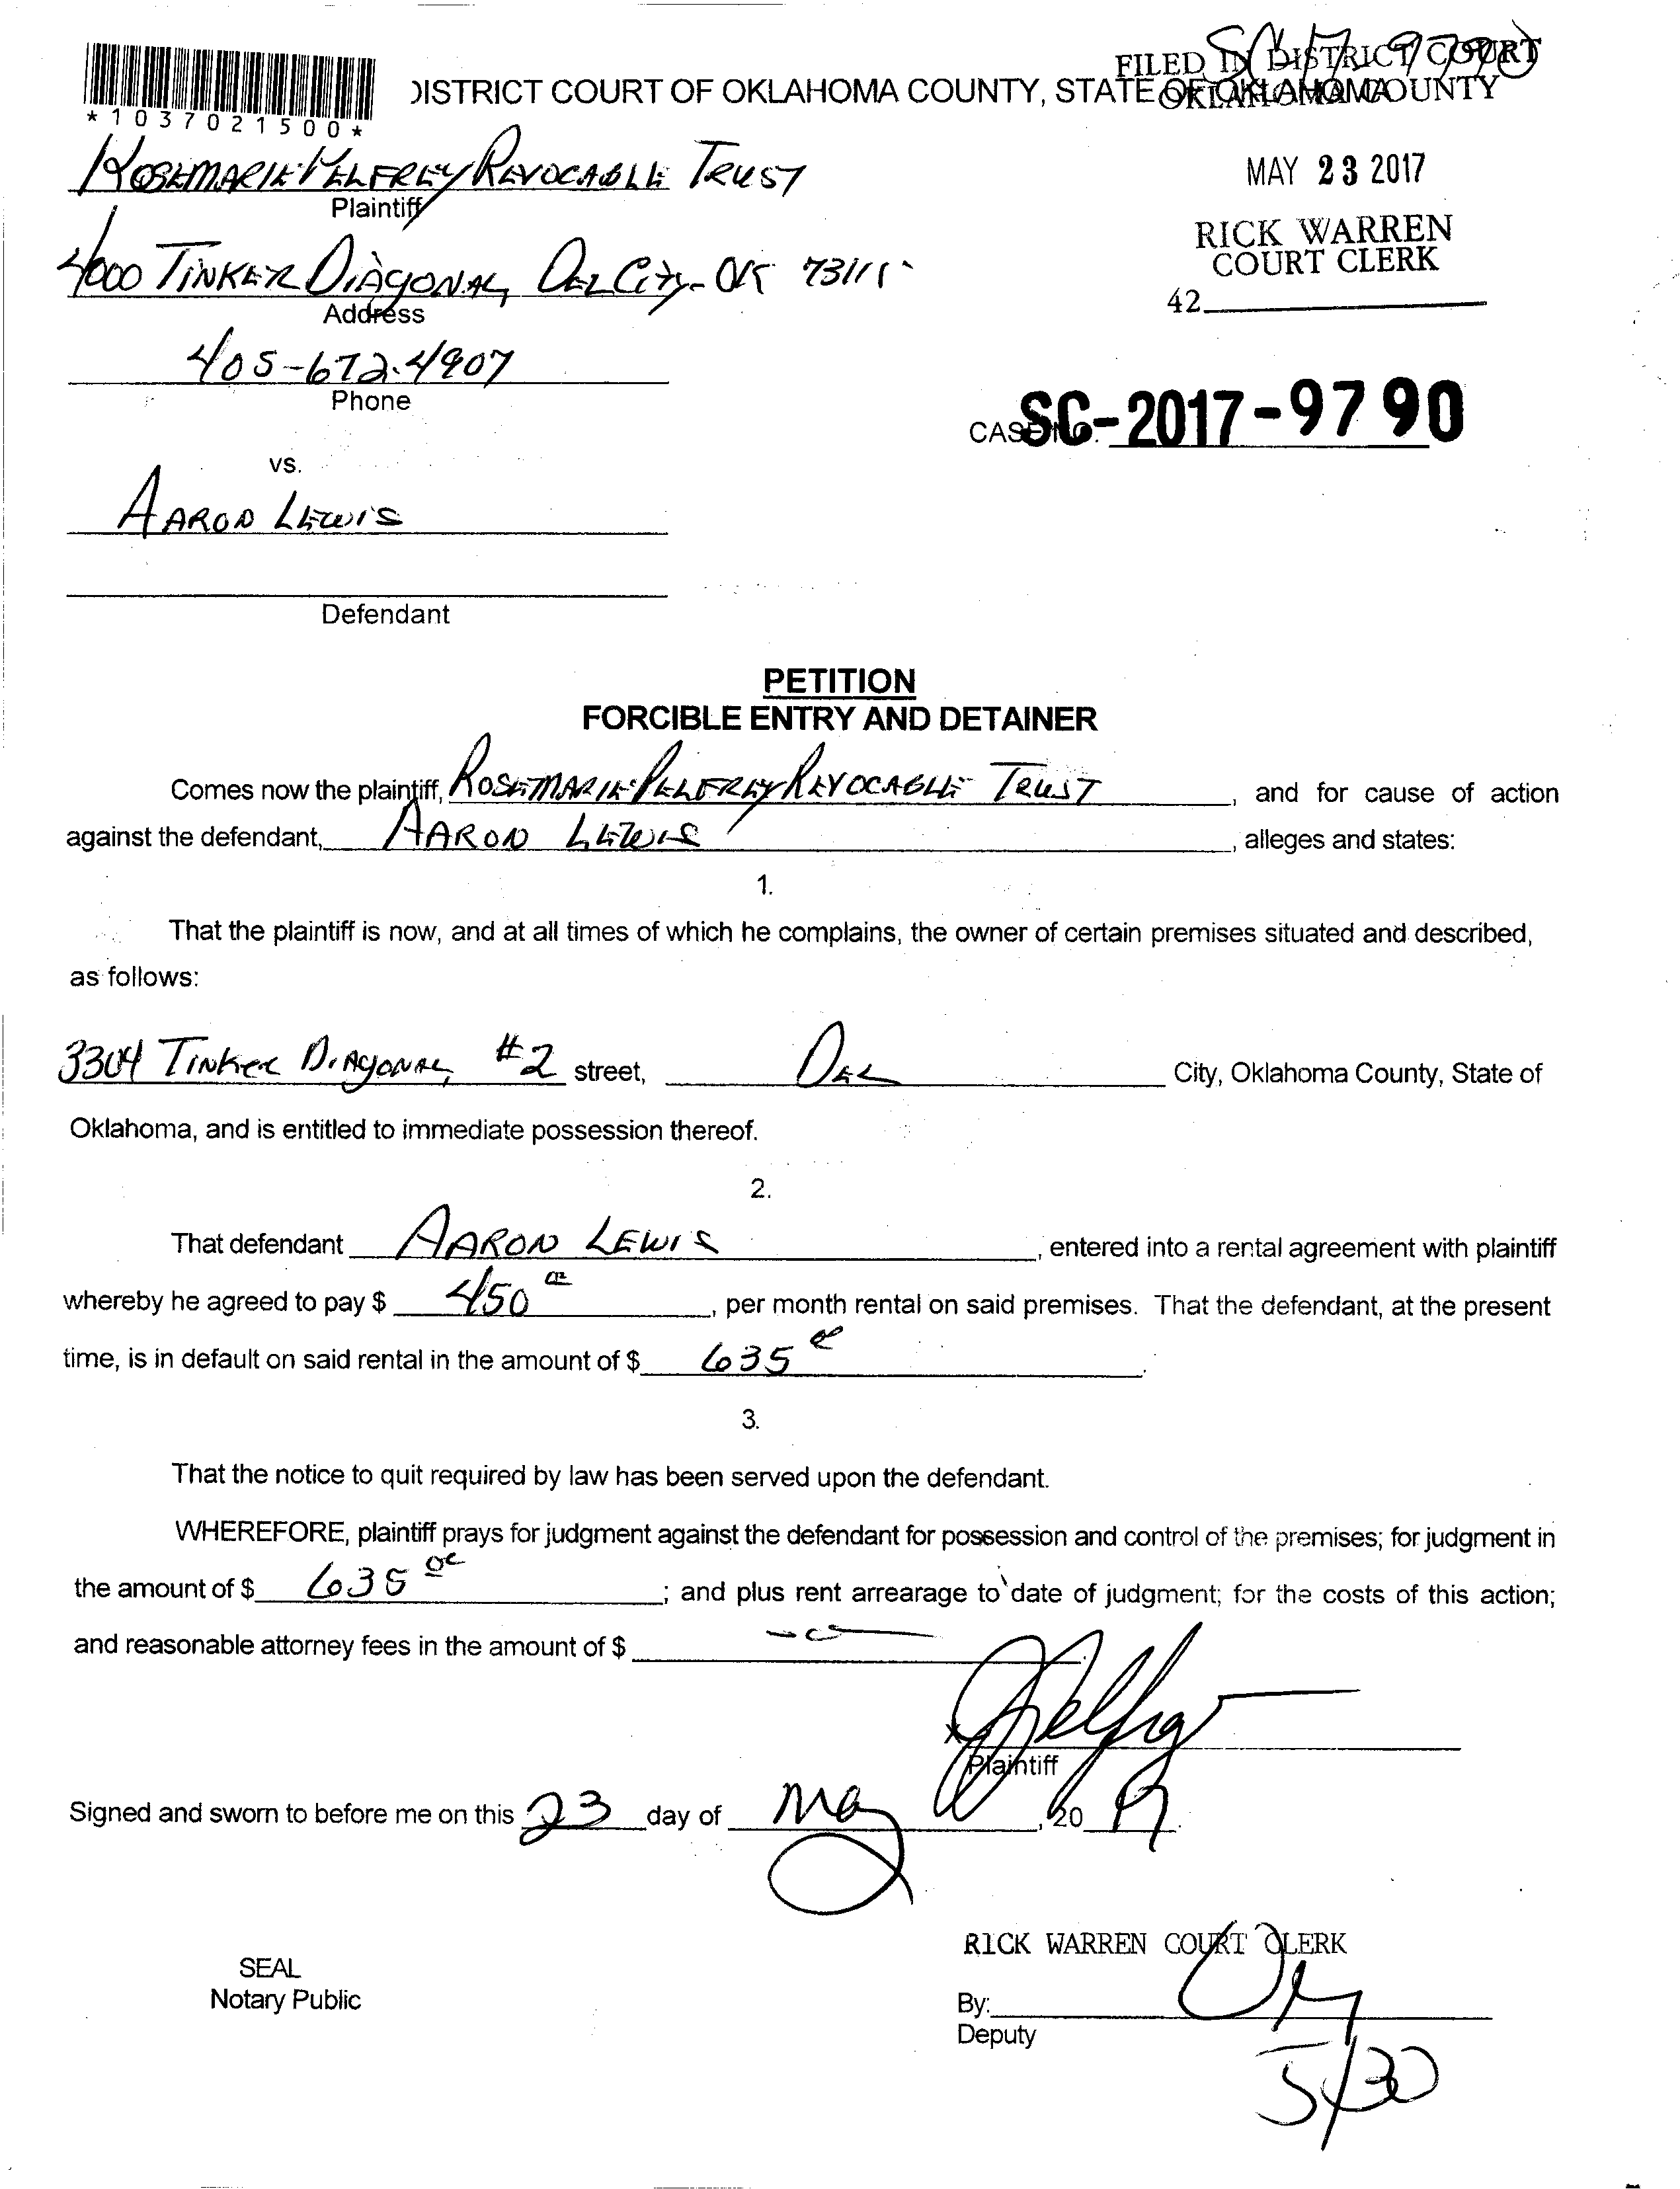 SC 17 9790
FILED IN DISTRICT COURT
OKLAHOMA COUNTY
ISTRICT COURT OF OKLAHOMA COUNTY, STATE OF OKLAHOMA
*1037021500*
ROSEMARIE PELFREY REVOCABLE TRUST
Plaintiff
MAY 23 2017
RICK WARREN
COURT CLERK
42
4000 TINKER DIAGONAL, DEL CITY-OK 73115
Address
405-672-4907
Phone
CASE NO. SC-2017-9790
vs.
AARON LEWIS
Defendant
PETITION
FORCIBLE ENTRY AND DETAINER
Comes now the plaintiff, ROSEMARIE PELFREY REVOCABLE TRUST, and for cause of action
against the defendant, AARON LEWIS, alleges and states:
1.
That the plaintiff is now, and at all times of which he complains, the owner of certain premises situated and described,
as follows:
3304 TINKER DIAGONAL, #2 street, DEL City, Oklahoma County, State of
Oklahoma, and is entitled to immediate possession thereof.
2.
That defendant AARON LEWIS, entered into a rental agreement with plaintiff
whereby he agreed to pay $ 450 00, per month rental on said premises. That the defendant, at the present
time, is in default on said rental in the amount of $ 635 00.
3.
That the notice to quit required by law has been served upon the defendant.
WHEREFORE, plaintiff prays for judgment against the defendant for possession and control of the premises; for judgment in
the amount of $ 635 00; and plus rent arrearage to date of judgment; for the costs of this action;
and reasonable attorney fees in the amount of $ -0-.
x Pelfrey
Plaintiff
Signed and sworn to before me on this 23 day of May, 2017.
RICK WARREN COURT CLERK
SEAL
Notary Public
By:
Deputy
5/30